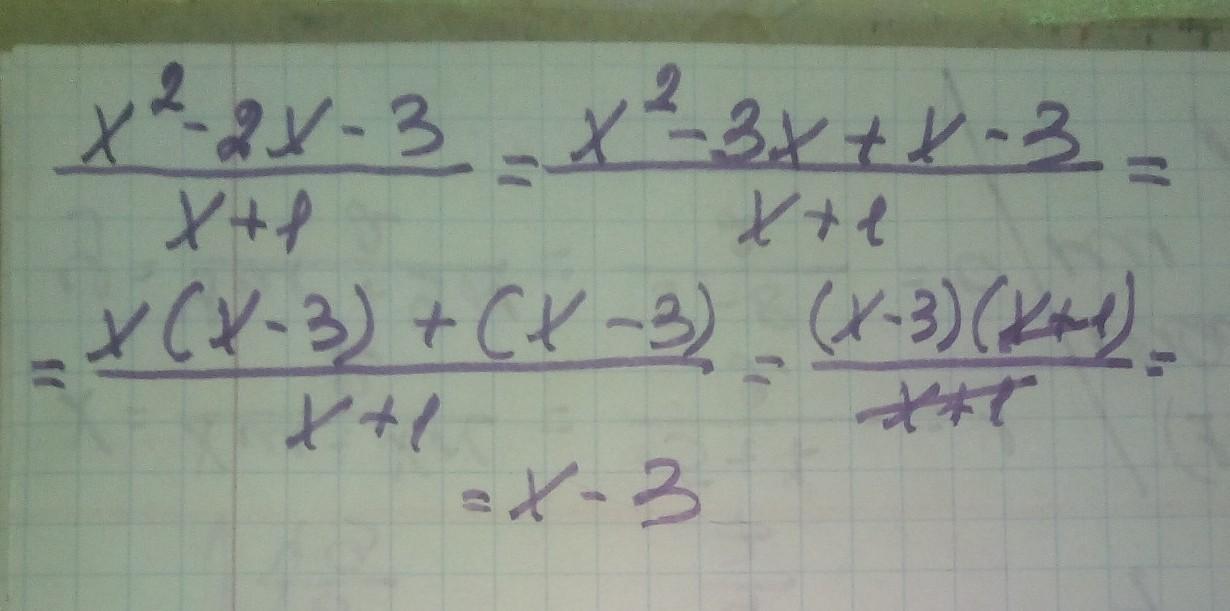 x² - 2x - 3 / x + 1 = x² - 3x + x - 3 / x + 1 =
= x(x - 3) + (x - 3) / x + 1 = (x - 3)(x + 1) / x + 1 =
= x - 3